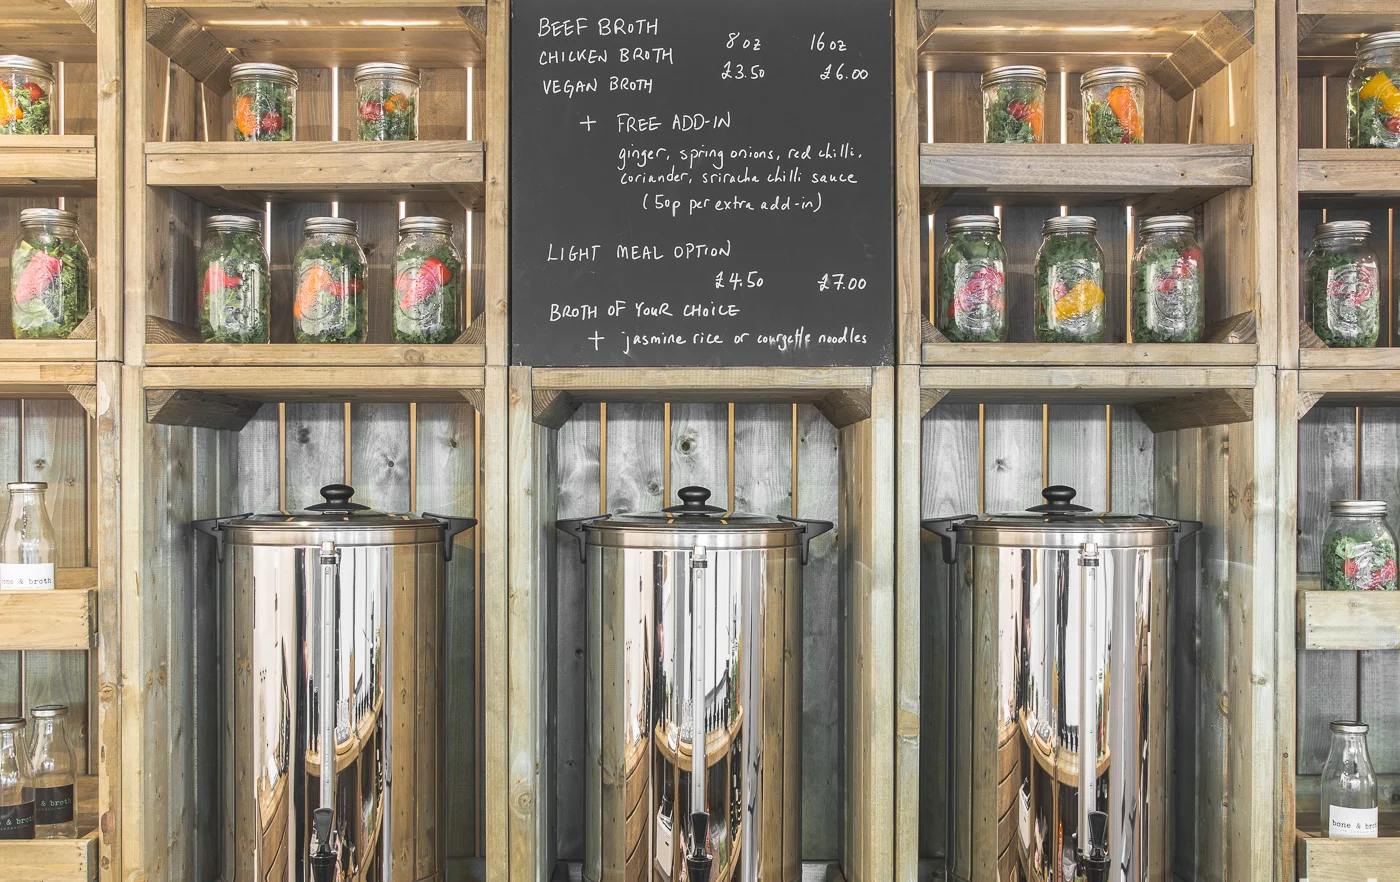 BEEF BROTH
CHICKEN BROTH 8oz 16oz
VEGAN BROTH £3.50 £6.00
+ FREE ADD-IN
ginger, spring onions, red chilli,
coriander, sriracha chilli sauce
(50p per extra add-in)
LIGHT MEAL OPTION
£4.50 £7.00
BROTH OF YOUR CHOICE
+ jasmine rice or courgette noodles
& broth
& broth
& broth
bone & broth